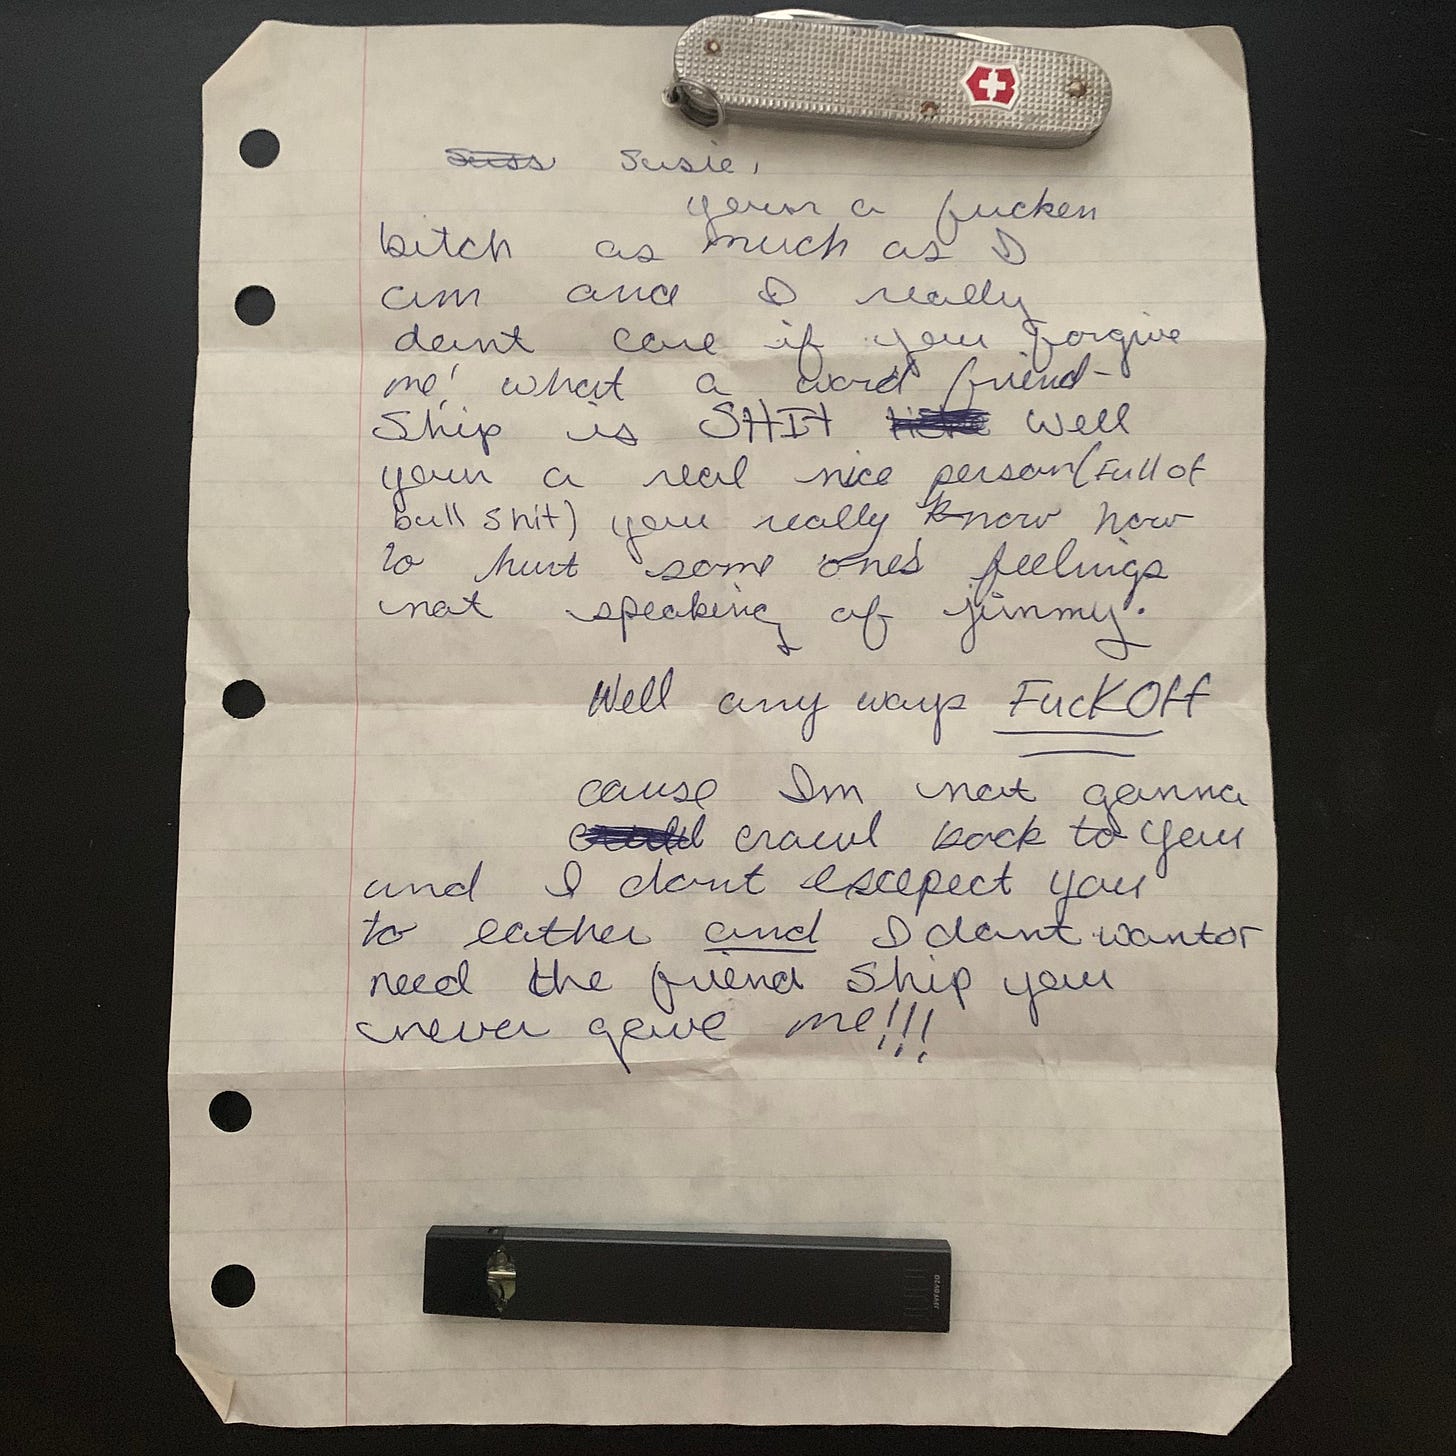 Susie,
your a fucken
bitch as much as I
am and I really
dont care if you forgive
me! what a word friend-
Ship is SHIT Well
your a real nice person (Full of
bull shit) you really know how
to hurt some ones feelings
not speaking of jimmy.
Well any ways FuckOff
cause Im not gonna
crawl back to you
and I dont escepect you
to eather and I dont want or
need the friend Ship you
never gave me!!!